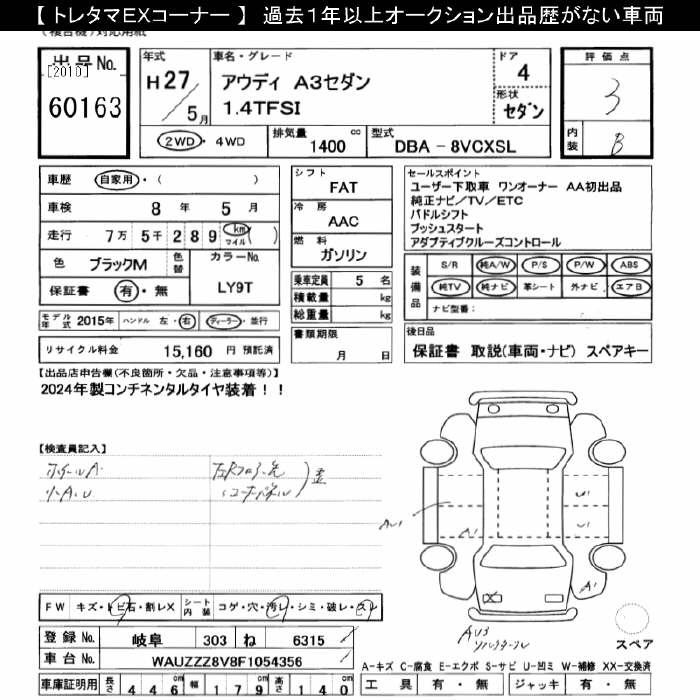 【 トレタマEXコーナー 】 過去1年以上オークション出品歴がない車両
出品No.
[2010]
60163
年式
H27/5月
車名・グレード
アウディ A3セダン
1.4TFSI
ドア
4
形状
セダン
評価点
3
内装
B
2WD・4WD
排気量
1400 cc
型式
DBA - 8VCXSL
車歴 自家用・( )
車検 8年 5月
走行 7万 5千 2 8 9 km マイル ( )
色 ブラックM
色替
カラーNo.
LY9T
保証書 有・無
モデル年式 2015年
ハンドル 左・右
ディーラー・並行
リサイクル料金 15,160 円 預託済
シフト
FAT
冷房
AAC
燃料
ガソリン
乗車定員 5 名
積載量 kg
総重量 kg
書類期限
月 日
セールスポイント
ユーザー下取車 ワンオーナー AA初出品
純正ナビ/TV/ETC
パドルシフト
プッシュスタート
アダプティブクルーズコントロール
装備品
S/R 純A/W P/S P/W ABS
純TV 純ナビ 革シート 外ナビ エアB
ナビ型番:
後日品
保証書 取説(車両・ナビ) スペアキー
【出品店申告欄(不良箇所・欠品・注意事項等)】
2024年製コンチネンタルタイヤ装着!!
【検査員記入】
ホイールA
小A.U
AU1
A1
U1
U1
A1
AU3
FW キズ・トビ石・割レX
シート内装 コゲ・穴・汚レ・シミ・破レ・スレ
登録No. 岐阜 303 ね 6315
車台No. WAUZZZ8V8F1054356
車庫証明用 長さ 446 幅 179 高さ 140
スペア
A-キズ C-腐食 E-エクボ S-サビ U-凹ミ W-補修 XX-交換済
工具 有・無 ジャッキ 有・無